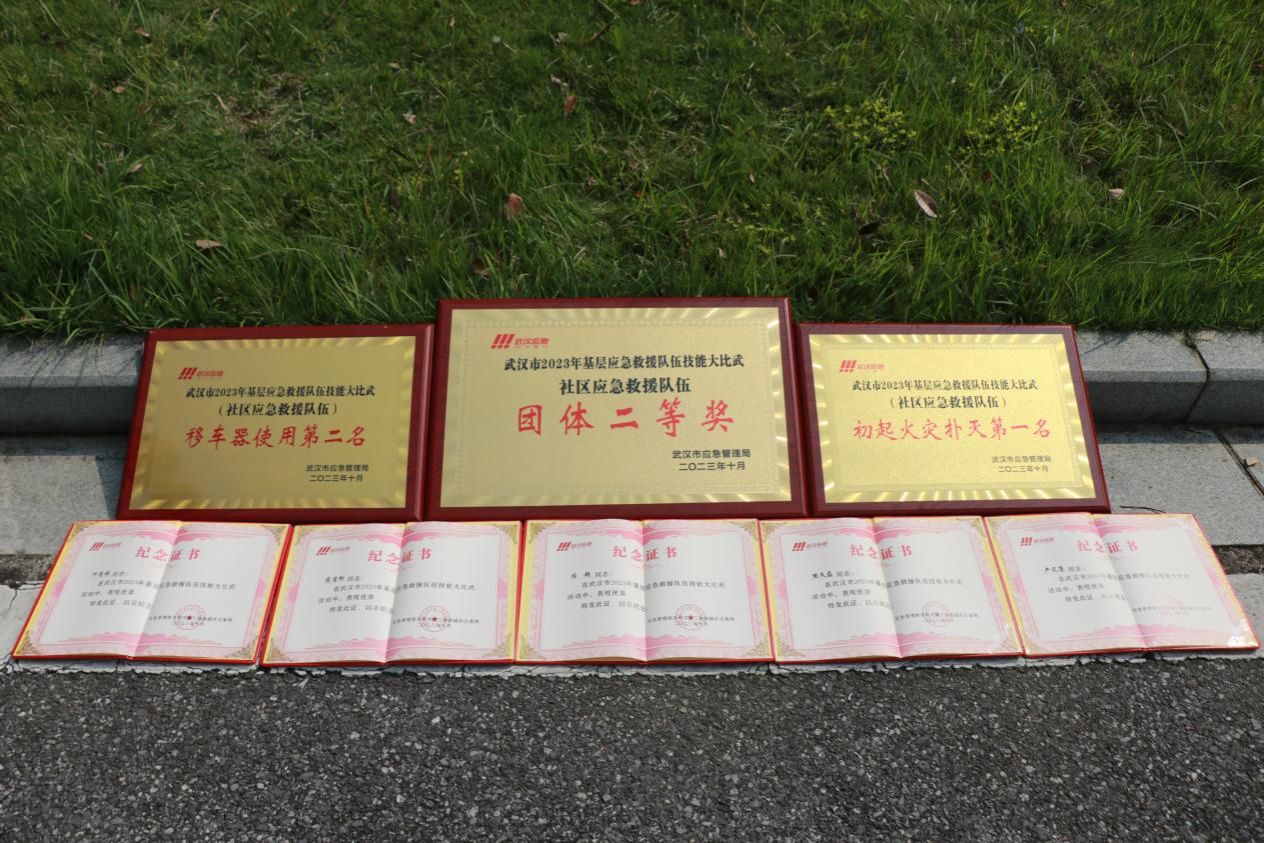 武汉应急
武汉市2023年基层应急救援队伍技能大比武
（社区应急救援队伍）
移车器使用第二名
武汉市应急管理局
二〇二三年十月
武汉应急
武汉市2023年基层应急救援队伍技能大比武
社区应急救援队伍
团体二等奖
武汉市应急管理局
二〇二三年十月
武汉应急
武汉市2023年基层应急救援队伍技能大比武
（社区应急救援队伍）
初起火灾扑灭第一名
武汉市应急管理局
二〇二三年十月
武汉应急
纪念证书
同志：
在武汉市2023年基层应急救援队伍技能大比武
活动中，表现优异。
特发此证，以示纪念
武汉应急
纪念证书
同志：
在武汉市2023年基层应急救援队伍技能大比武
活动中，表现优异。
特发此证，以示纪
武汉应急
纪念证书
同志：
在武汉市2023年基层应急救援队伍技能大比武
活动中，表现优异。
特发此证，以示纪
武汉应急
纪念证书
同志：
在武汉市2023年基层应急救援队伍技能大比武
活动中，表现优异。
特发此证，以示纪
武汉应急
纪念证书
同志：
在武汉市2023年基层应急救援队伍技能大比武
活动中，表现优异。
特发此证，以示纪